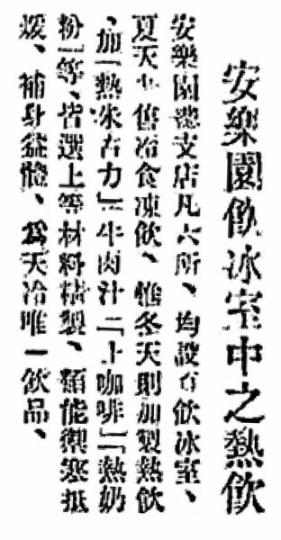 安樂園飲冰室中之熱飲
安樂園總支店凡六所、均設有飲冰室、
夏天少售冷食凍飲、惟冬天則加製熱飲
、加「熱朱古力」「牛肉汁」「上咖啡」「熱奶
粉」等、皆選上等材料精製、頗能禦寒抵
煖、補身益體、為天冷唯一飲品、